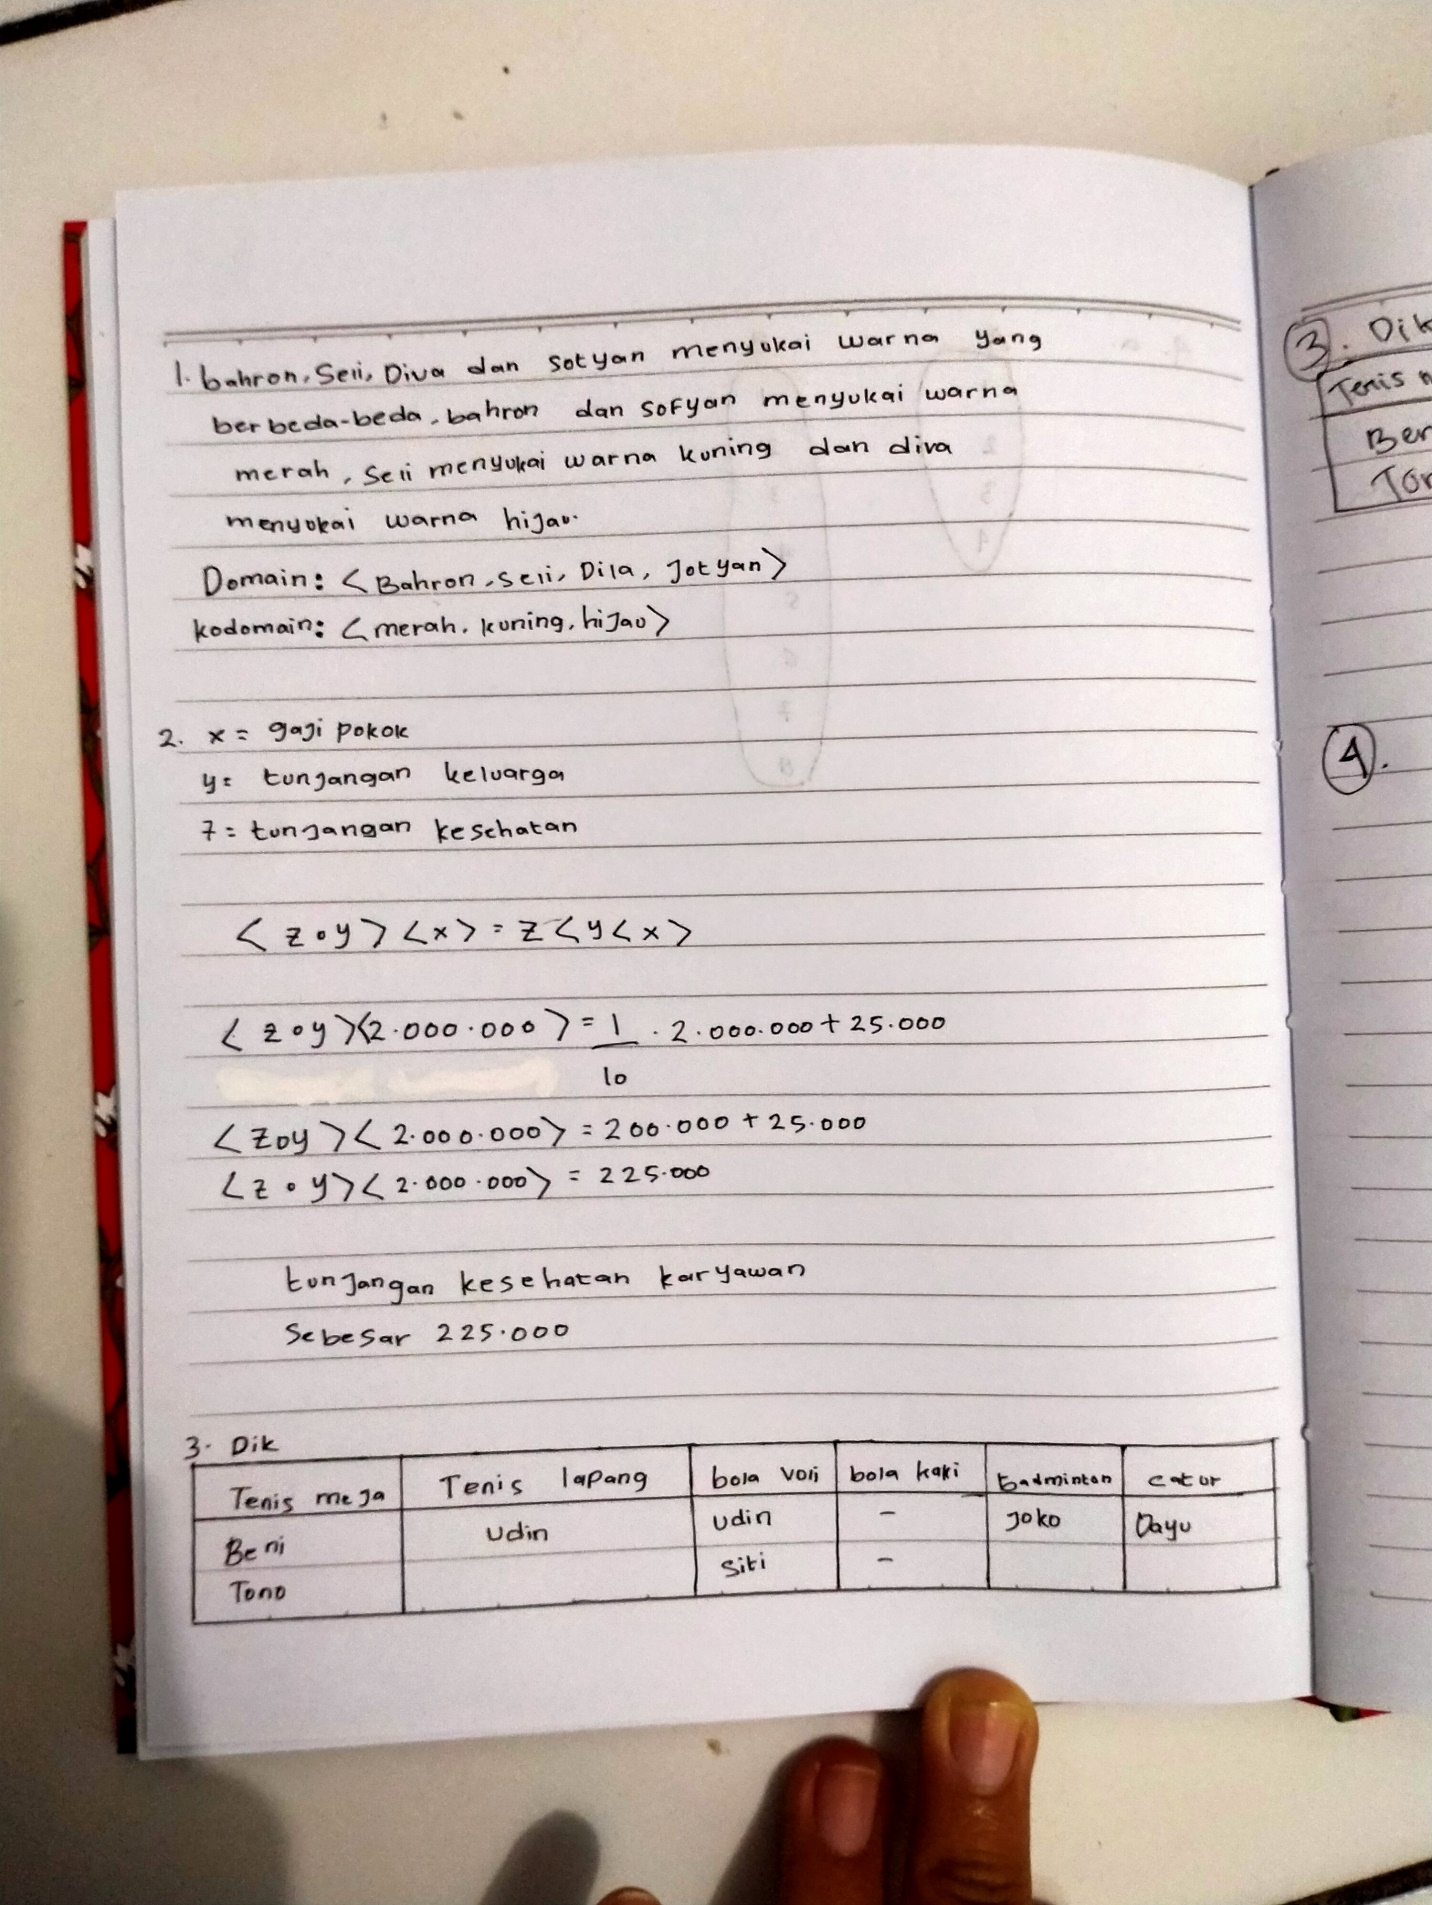 1. bahron, Seli, Diva dan Sofyan menyukai warna yang
berbeda-beda, bahron dan sofyan menyukai warna
merah, Seli menyukai warna kuning dan diva
menyukai warna hijau.
Domain: < Bahron, seli, Dila, Jofyan>
kodomain: < merah, kuning, hijau>
2. x = gaji pokok
y = tunjangan keluarga
z = tunjangan kesehatan
< z o y > <x> = z < y < x >
< z o y ><2.000.000 > = 1/10 . 2.000.000 + 25.000
< zoy > < 2.000.000> = 200.000 + 25.000
< z o y > < 2.000.000> = 225.000
tunjangan kesehatan karyawan
Sebesar 225.000
3. Dik
Tenis meja Tenis lapang bola voli bola kaki badminton catur
Beni Udin Udin - Joko Dayu
Tono Siti -
3. Dik
Tenis
4.